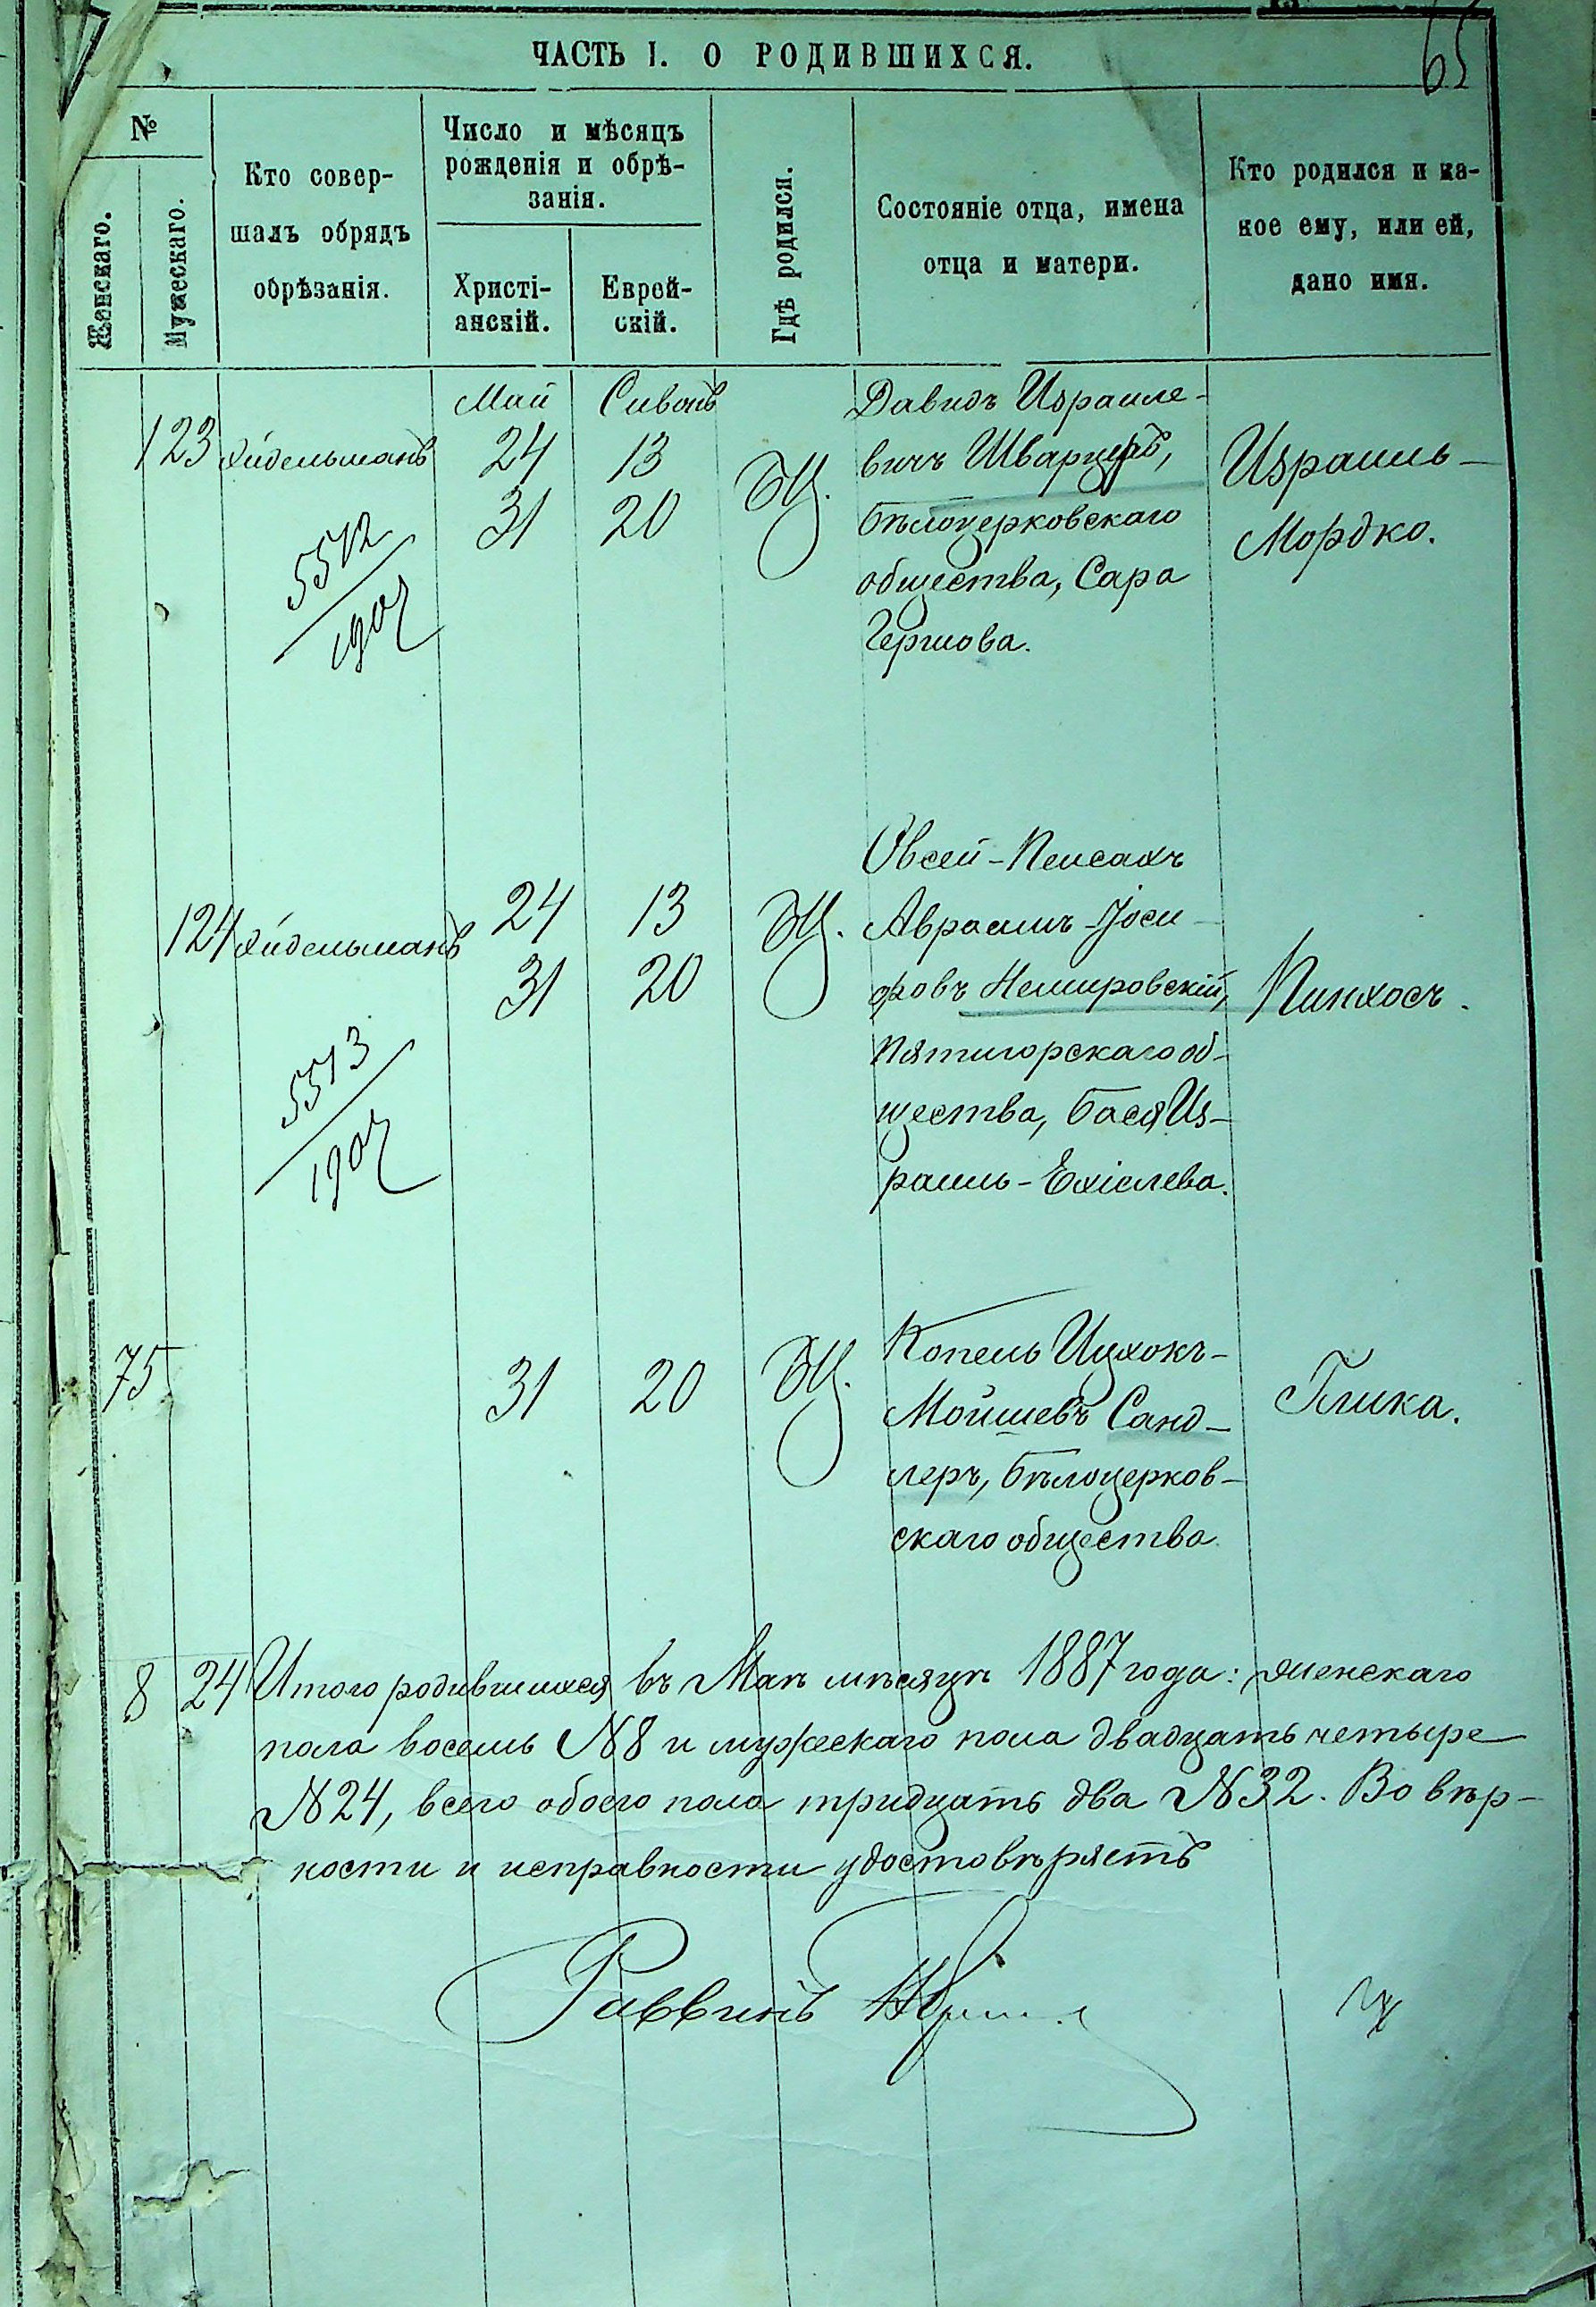 65
ЧАСТЬ I. О РОДИВШИХСЯ.
№
Женскаго.
Мужескаго.
Кто совер-
шалъ обрядъ
обрѣзанія.
Число и мѣсяцъ
рожденія и обрѣ-
занія.
Христі-
анскій.
Еврей-
скій.
Гдѣ родился.
Состояніе отца, имена
отца и матери.
Кто родился и ка-
кое ему, или ей,
дано имя.
Май Сивонъ
123 24 13
31 20
Давидъ Израиле-
вичъ Шварцеръ,
бѣлоцерковскаго
общества, Сара
Гершова.
Израиль-
Мордко.
5512
1907
124 24 13
31 20
Овсей-Пейсахъ
Аврамъ-Іосе-
фовъ Немировскій,
пятигорскаго об-
щества, Бася Из-
раиль-Ехіелева.
Пинхосъ.
5513
1907
75 31 20
Копель Ицхокъ-
Мойшевъ Санд-
леръ, бѣлоцерков-
скаго общества
Глика.
8 24 Итого родившихся въ Маѣ мѣсяцѣ 1887 года: женскаго
пола восемь №8 и мужескаго пола двадцать четыре
№24, всего обоего пола тридцать два №32. Во вѣр-
ности и исправности удостовѣряетъ
Раввинъ